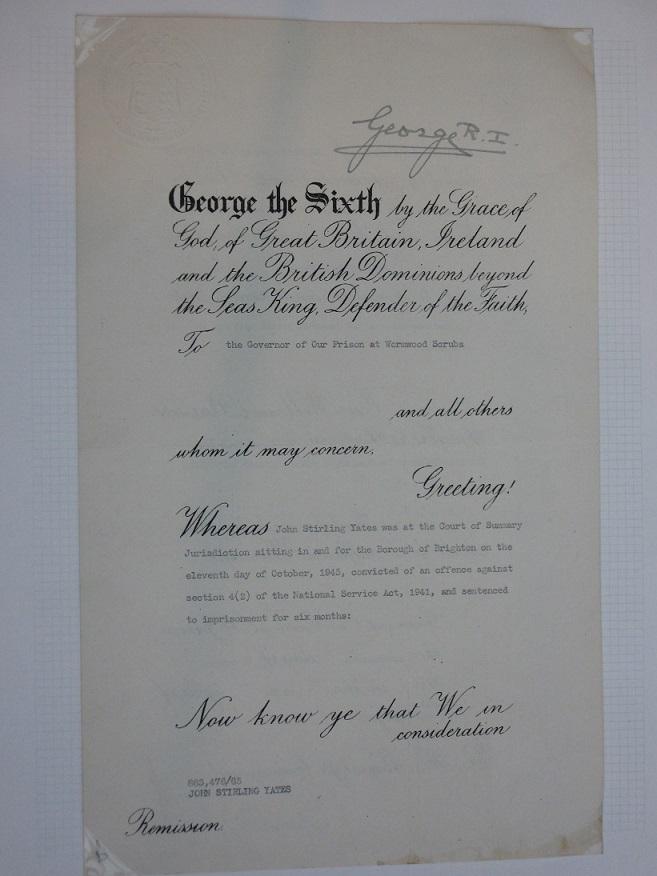 George R.I.
George the Sixth by the Grace of
God, of Great Britain, Ireland
and the British Dominions beyond
the Seas King, Defender of the Faith,
To the Governor of Our Prison at Wormwood Scrubs
and all others
whom it may concern.
Greeting!
Whereas John Stirling Yates was at the Court of Summary
Jurisdiction sitting in and for the Borough of Brighton on the
eleventh day of October, 1945, convicted of an offence against
section 4(2) of the National Service Act, 1941, and sentenced
to imprisonment for six months:
Now know ye that We in
consideration
JOHN STIRLING YATES
Remission.